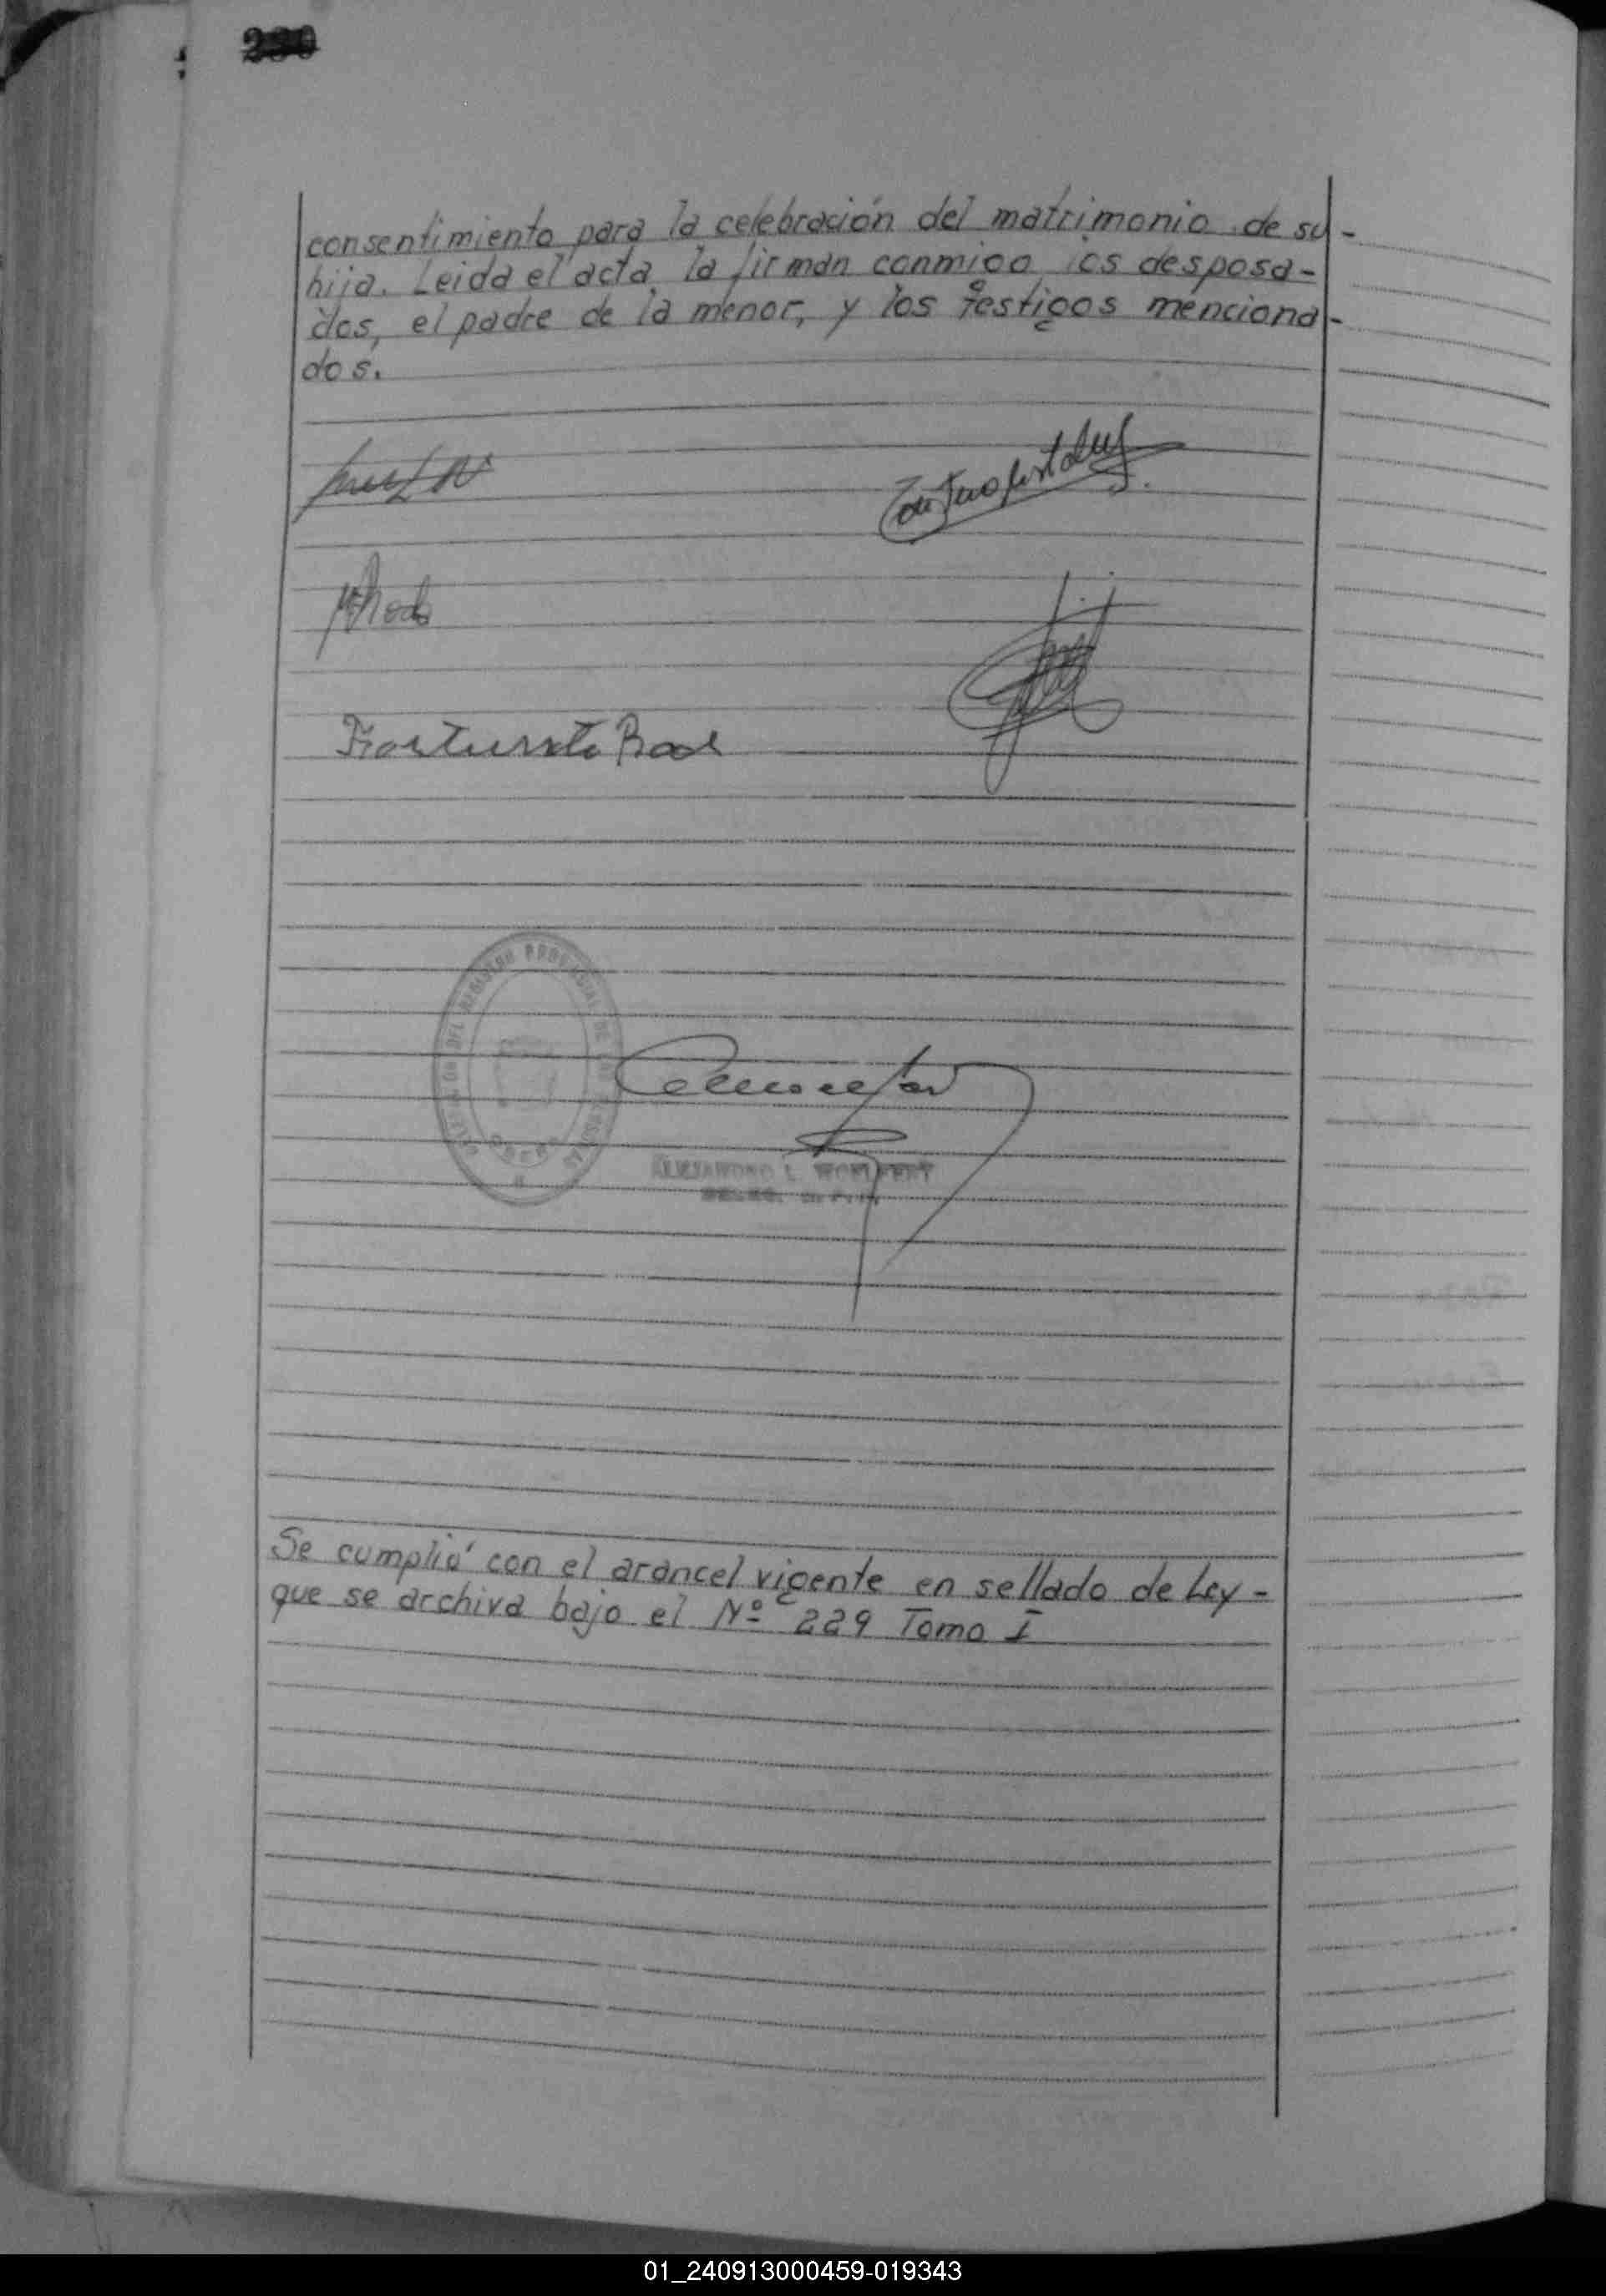 230
consentimiento para la celebración del matrimonio de su-
hija. Leida el acta, la firman conmigo los desposa-
dos, el padre de la menor, y los testigos menciona-
dos.
DEL REGISTRO PROVINCIAL DE LAS PERSONAS
OBERA
ALEJANDRO L.
Se cumplió con el arancel vigente en sellado de Ley-
que se archiva bajo el Nº 229 Tomo I
01_240913000459-019343